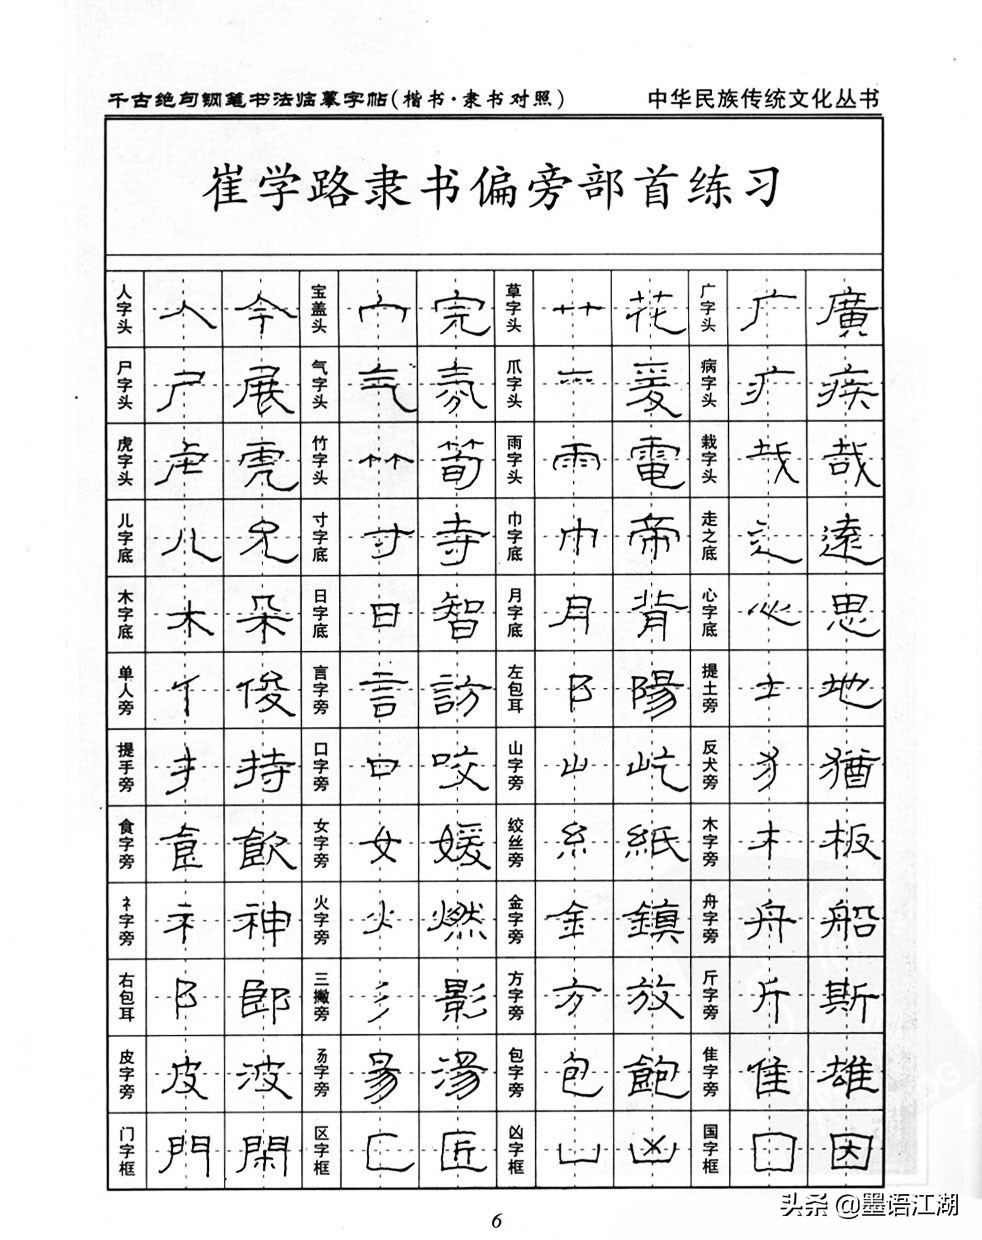 千古绝句钢笔书法临摹字帖(楷书·隶书对照) 中华民族传统文化丛书
崔学路隶书偏旁部首练习
人字头 人 今 宝盖头 宀 完 草字头 艹 花 广字头 广 廣
尸字头 尸 展 气字头 气 氛 爪字头 爫 爰 病字头 疒 疾
虎字头 虍 虎 竹字头 竹 筍 雨字头 雨 電 栽字头 𢦏 哉
儿字底 儿 兄 寸字底 寸 寺 巾字底 巾 帝 走之底 辶 遠
木字底 木 朵 日字底 日 智 月字底 月 背 心字底 心 思
单人旁 亻 俊 言字旁 言 訪 左包耳 阝 陽 提土旁 土 地
提手旁 扌 持 口字旁 口 咬 山字旁 山 屹 反犬旁 犭 猶
食字旁 飠 飲 女字旁 女 媛 绞丝旁 糹 紙 木字旁 木 板
礻字旁 礻 神 火字旁 火 燃 金字旁 金 鎮 舟字旁 舟 船
右包耳 阝 郎 三撇旁 彡 影 方字旁 方 放 斤字旁 斤 斯
皮字旁 皮 波 昜字旁 昜 湯 包字旁 包 飽 隹字旁 隹 雄
门字框 門 閑 区字框 匚 匠 凶字框 凵 凶 国字框 囗 因
头条 @墨语江湖
6